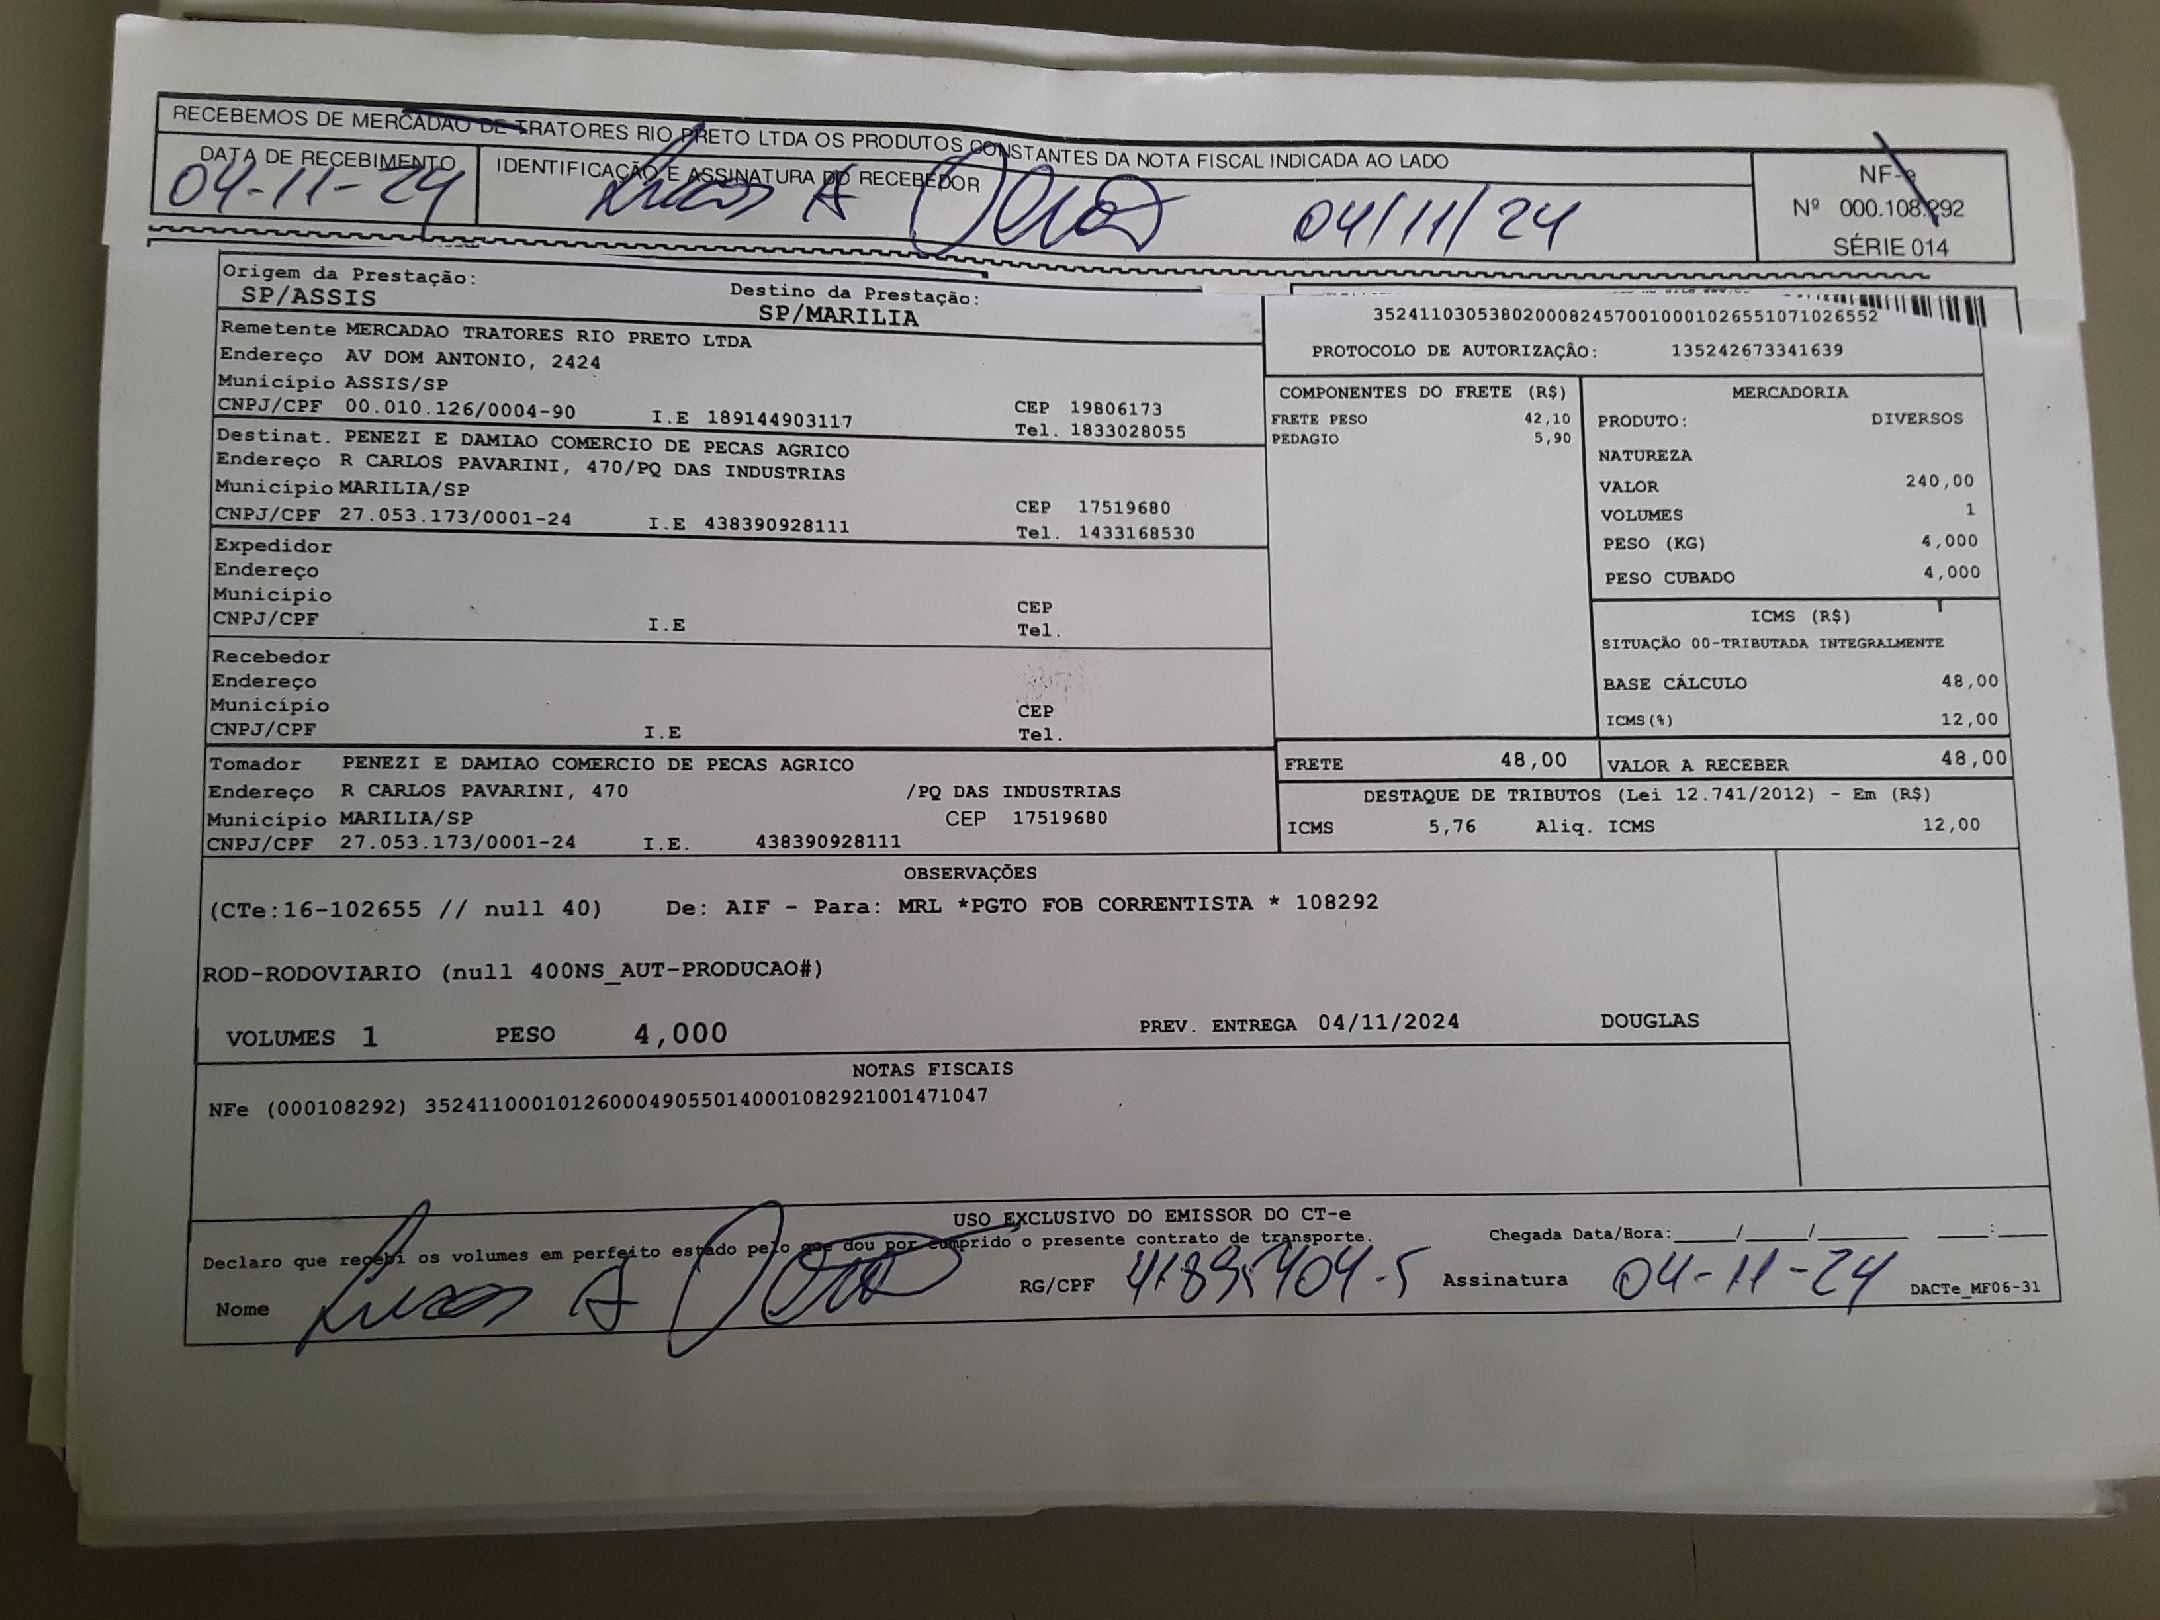 RECEBEMOS DE MERCADAO DE TRATORES RIO PRETO LTDA OS PRODUTOS CONSTANTES DA NOTA FISCAL INDICADA AO LADO
DATA DE RECEBIMENTO IDENTIFICAÇÃO E ASSINATURA DO RECEBEDOR
04-11-24 Lucas A 04/11/24
NF-e
Nº 000.108.292
SÉRIE 014
Origem da Prestação:
SP/ASSIS
Destino da Prestação:
SP/MARILIA
35241103053802000824570010001026551071026552
PROTOCOLO DE AUTORIZAÇÃO: 135242673341639
Remetente MERCADAO TRATORES RIO PRETO LTDA
Endereço AV DOM ANTONIO, 2424
Município ASSIS/SP
CEP 19806173
CNPJ/CPF 00.010.126/0004-90 I.E 189144903117
Tel. 1833028055
Destinat. PENEZI E DAMIAO COMERCIO DE PECAS AGRICO
Endereço R CARLOS PAVARINI, 470/PQ DAS INDUSTRIAS
Município MARILIA/SP
CEP 17519680
CNPJ/CPF 27.053.173/0001-24 I.E 438390928111
Tel. 1433168530
Expedidor
Endereço
Município
CEP
CNPJ/CPF I.E Tel.
Recebedor
Endereço
Município
CEP
CNPJ/CPF I.E Tel.
Tomador PENEZI E DAMIAO COMERCIO DE PECAS AGRICO
Endereço R CARLOS PAVARINI, 470 /PQ DAS INDUSTRIAS
Município MARILIA/SP CEP 17519680
CNPJ/CPF 27.053.173/0001-24 I.E. 438390928111
COMPONENTES DO FRETE (R$)
FRETE PESO 42,10
PEDAGIO 5,90
MERCADORIA
PRODUTO: DIVERSOS
NATUREZA
VALOR 240,00
VOLUMES 1
PESO (KG) 4,000
PESO CUBADO 4,000
ICMS (R$)
SITUAÇÃO 00-TRIBUTADA INTEGRALMENTE
BASE CÁLCULO 48,00
ICMS(%) 12,00
FRETE 48,00 VALOR A RECEBER 48,00
DESTAQUE DE TRIBUTOS (Lei 12.741/2012) - Em (R$)
ICMS 5,76 Aliq. ICMS 12,00
OBSERVAÇÕES
(CTe:16-102655 // null 40) De: AIF - Para: MRL *PGTO FOB CORRENTISTA * 108292
ROD-RODOVIARIO (null 400NS_AUT-PRODUCAO#)
VOLUMES 1 PESO 4,000 PREV. ENTREGA 04/11/2024 DOUGLAS
NOTAS FISCAIS
NFe (000108292) 35241100010126000490550140001082921001471047
USO EXCLUSIVO DO EMISSOR DO CT-e
Declaro que recebi os volumes em perfeito estado pelo que dou por cumprido o presente contrato de transporte. Chegada Data/Hora:____/____/______ ___:____
Nome Lucas A RG/CPF Assinatura 04-11-24 DACTe_MF06-31